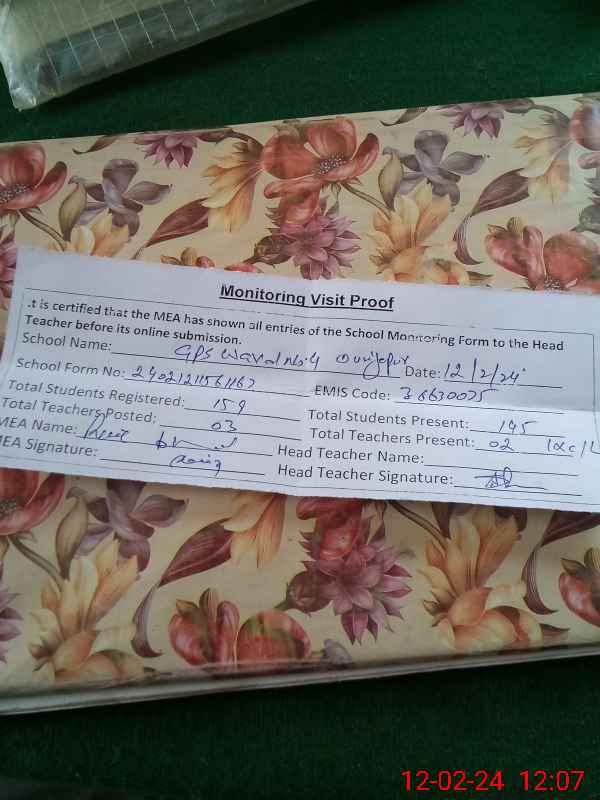 Monitoring Visit Proof
.t is certified that the MEA has shown all entries of the School Monitoring Form to the Head
Teacher before its online submission.
School Name: GPS Ward No. 4 Date: 12/2/24
School Form No: EMIS Code: 36630075
Total Students Registered: 159 Total Students Present: 145
Total Teachers Posted: 03 Total Teachers Present: 02
MEA Name: Head Teacher Name:
MEA Signature: Head Teacher Signature:
12-02-24 12:07